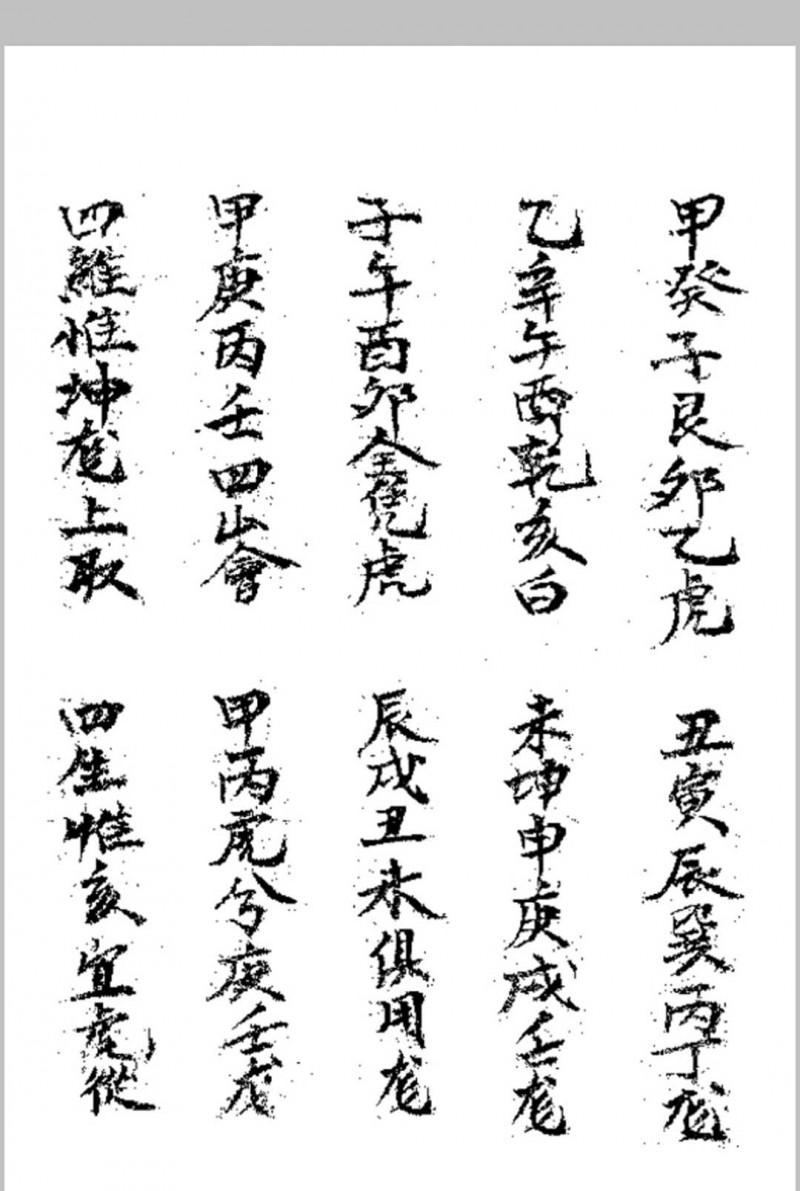 甲癸子艮卯乙虎
丑寅辰巽丙丁龙
乙辛午酉乾亥白
未坤申庚戌壬龙
子午酉卯全凭虎
辰戌丑未俱用龙
甲庚丙壬四山會
甲丙虎兮庚壬龙
四維惟坤龙上取
四生惟亥宜虎從